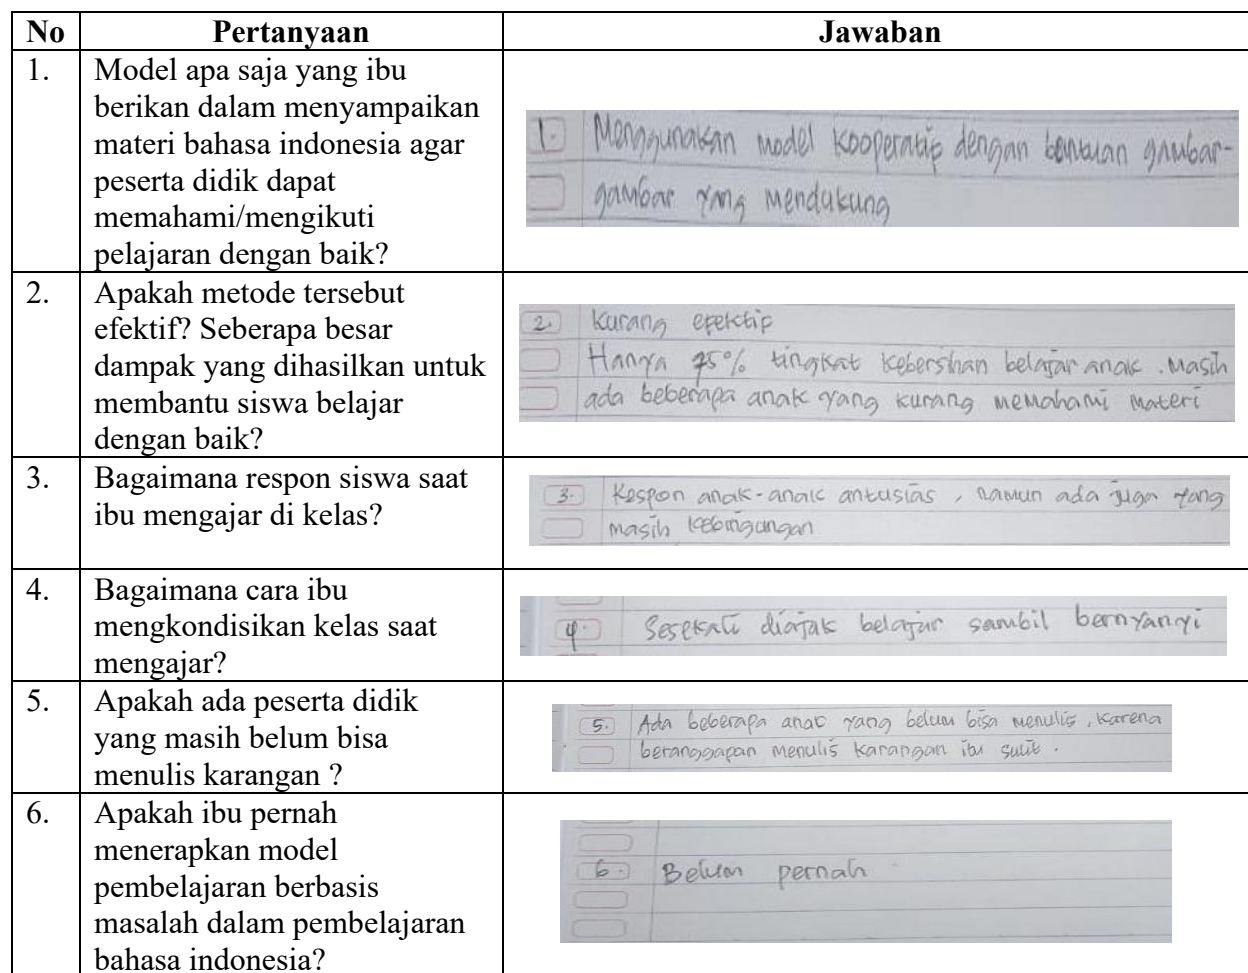 No Pertanyaan Jawaban
1. Model apa saja yang ibu
berikan dalam menyampaikan
materi bahasa indonesia agar
peserta didik dapat
memahami/mengikuti
pelajaran dengan baik?
1. Menggunakan model kooperatif dengan bantuan gambar-
gambar yang mendukung
2. Apakah metode tersebut
efektif? Seberapa besar
dampak yang dihasilkan untuk
membantu siswa belajar
dengan baik?
2. Kurang efektif
Hanya 75% tingkat kebersihan belajar anak. Masih
ada beberapa anak yang kurang memahami materi
3. Bagaimana respon siswa saat
ibu mengajar di kelas?
3. Respon anak-anak antusias, namun ada juga yang
masih kebingungan
4. Bagaimana cara ibu
mengkondisikan kelas saat
mengajar?
4. Sesekali diajak belajar sambil bernyanyi
5. Apakah ada peserta didik
yang masih belum bisa
menulis karangan ?
5. Ada beberapa anak yang belum bisa menulis, karena
beranggapan menulis karangan itu sulit.
6. Apakah ibu pernah
menerapkan model
pembelajaran berbasis
masalah dalam pembelajaran
bahasa indonesia?
6. Belum pernah